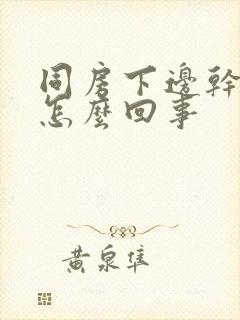 同房下邊幹
怎麼回事
黃泉隼